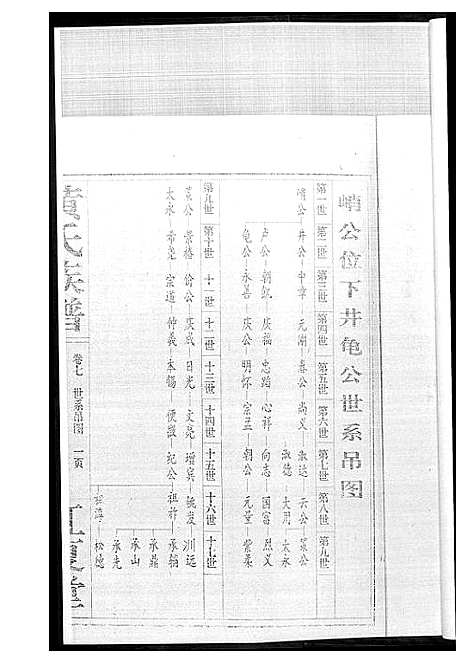 峭公位下井龟公世系吊图
第一世 第二世 第三世 第四世 第五世 第六世 第七世 第八世 第九世
峭公 井公 中章 元湖 春公 尚义 淑达 云公 荣公
淑德 大用 太永
卢公 朝 庆福 忠路 心祥 向志 国富 烈义
龟公 永善 庆公 明怀 宗三 朝公 元量 紫荣
第九世 第十世 十一世 十二世 十三世 十四世 十五世 十六世 十七世
荣公 景榕 俯公 庆成 日光 文亮 增宾 毓发 训远
太永 希尧 宗道 仲义 本锡 便 纪公 祖 承翰
承鼎
承山
承先
松德
黄氏族谱
卷七 世系吊图 一页